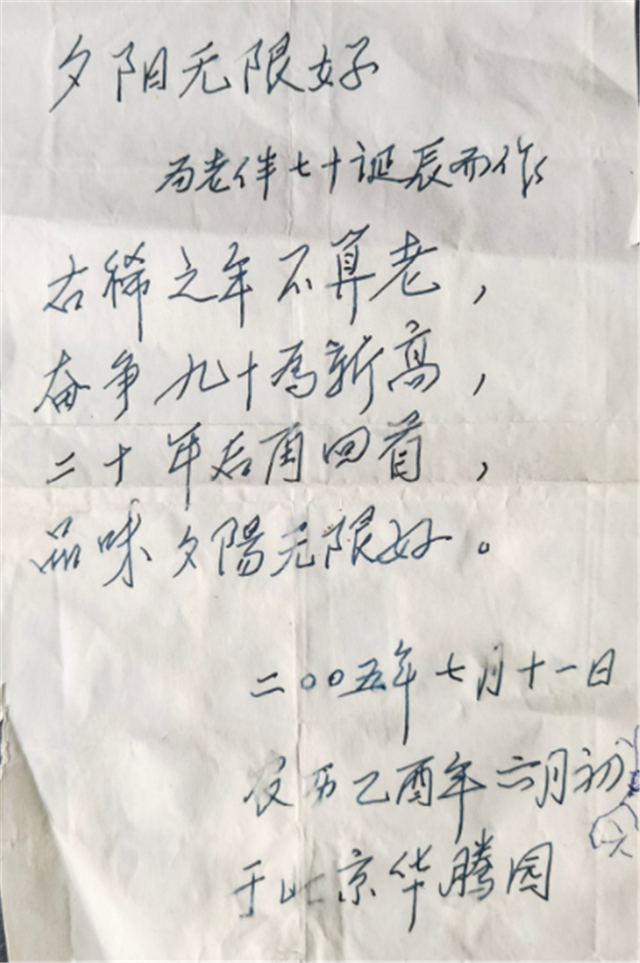 夕阳无限好
为老伴七十诞辰而作
古稀之年不算老，
奋争九十为新高，
二十年后再回首，
品味夕陽无限好。
二〇〇五年七月十一日
农历乙酉年六月初六
于北京华腾园